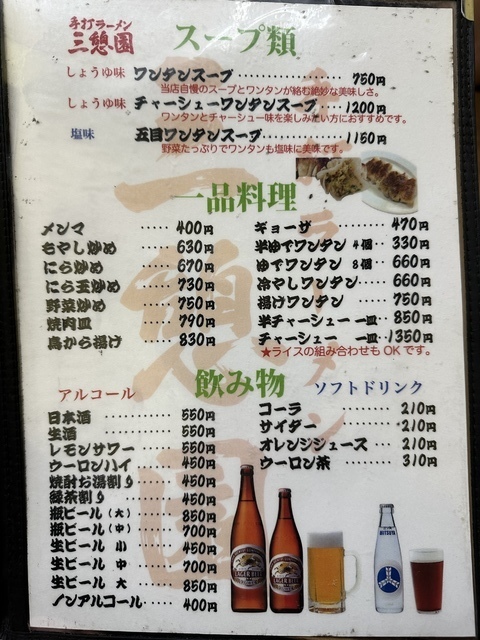 手打ラーメン
三憩園
スープ類
しょうゆ味 ワンタンスープ 750円
当店自慢のスープとワンタンが絡む絶妙な美味しさ。
しょうゆ味 チャーシューワンタンスープ 1200円
ワンタンとチャーシュー味を楽しみたい方におすすめです。
塩味 五目ワンタンスープ 1150円
野菜たっぷりでワンタンも塩味に美味です。
一品料理
メンマ 400円
もやし炒め 630円
にら炒め 670円
にら玉炒め 730円
野菜炒め 750円
焼肉皿 790円
鳥から揚げ 830円
ギョーザ 470円
半ゆでワンタン 4個 330円
ゆでワンタン 8個 660円
冷やしワンタン 660円
揚げワンタン 750円
半チャーシュー 一皿 850円
チャーシュー 一皿 1350円
★ライスの組み合わせもOKです。
飲み物
アルコール
日本酒 550円
生酒 550円
レモンサワー 550円
ウーロンハイ 450円
焼酎お湯割り 450円
緑茶割り 450円
瓶ビール(大) 850円
瓶ビール(中) 700円
生ビール 小 450円
生ビール 中 700円
生ビール 大 850円
ノンアルコール 400円
ソフトドリンク
コーラ 210円
サイダー 210円
オレンジジュース 210円
ウーロン茶 310円